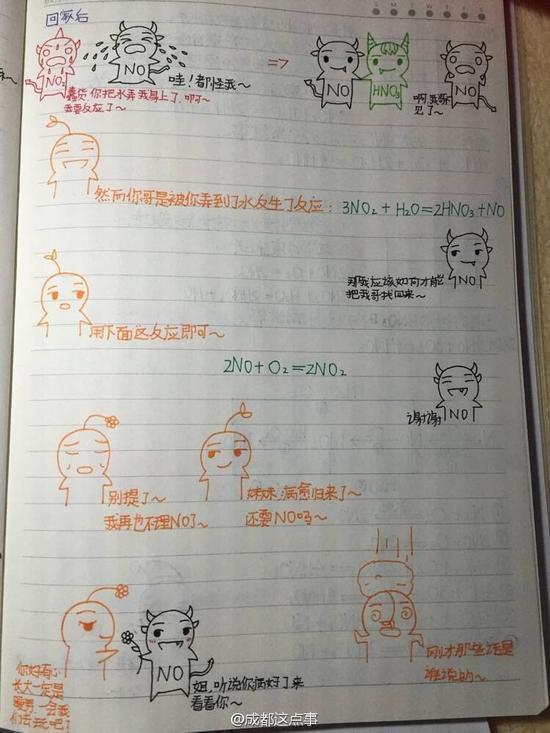 回家后
S M T W T F S
NO₂
NO
哇！都怪我～
=>
NO
HNO₃
NO
蠢货你把水弄我身上了啊～
我要反应了～
啊，我哥
见了～
然而你哥是被你弄到了水发生了反应：3NO₂+H₂O=2HNO₃+NO
NO
那我应该如何才能
把我哥找回来～
用下面这反应即可～
2NO+O₂=2NO₂
谢谢
NO
别提了～
我再也不理NO了～
妹妹，病愈归来了～
还要NO吗～
NO
你好有心
长大一定是
暖男，一会我
们去玩吧？
姐，听说你病好了来
看看你～
刚才那些话是
谁说的～
@成都这点事